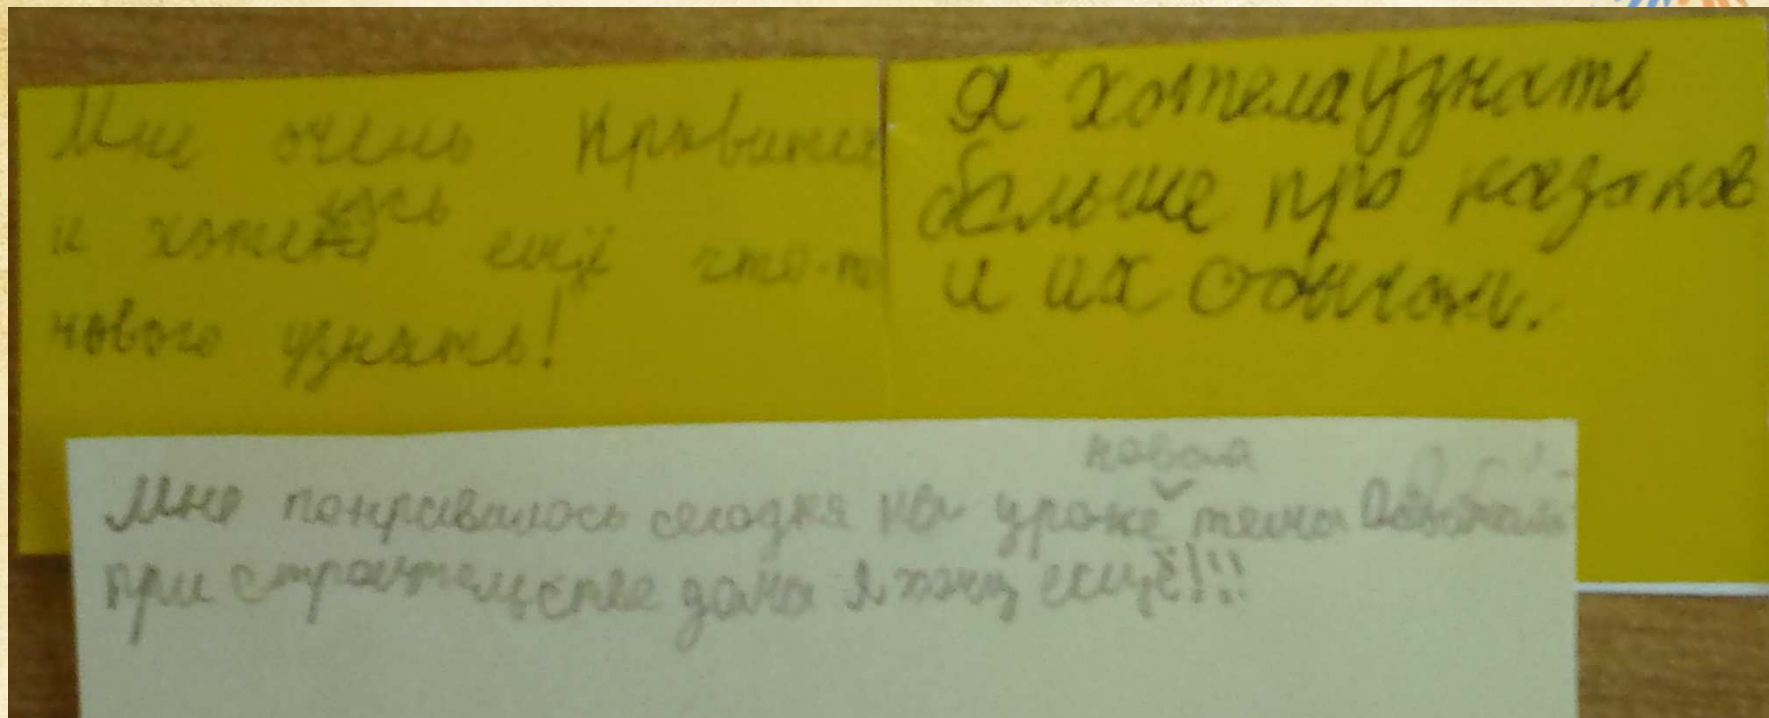 Мне очень нравится
и хотелось ещё что-то
нового узнать!
Я хотела узнать
больше про казаков
и их обычаи.
Мне понравилось сегодня на уроке новая тема
при строительстве дома я хочу ещё!!!